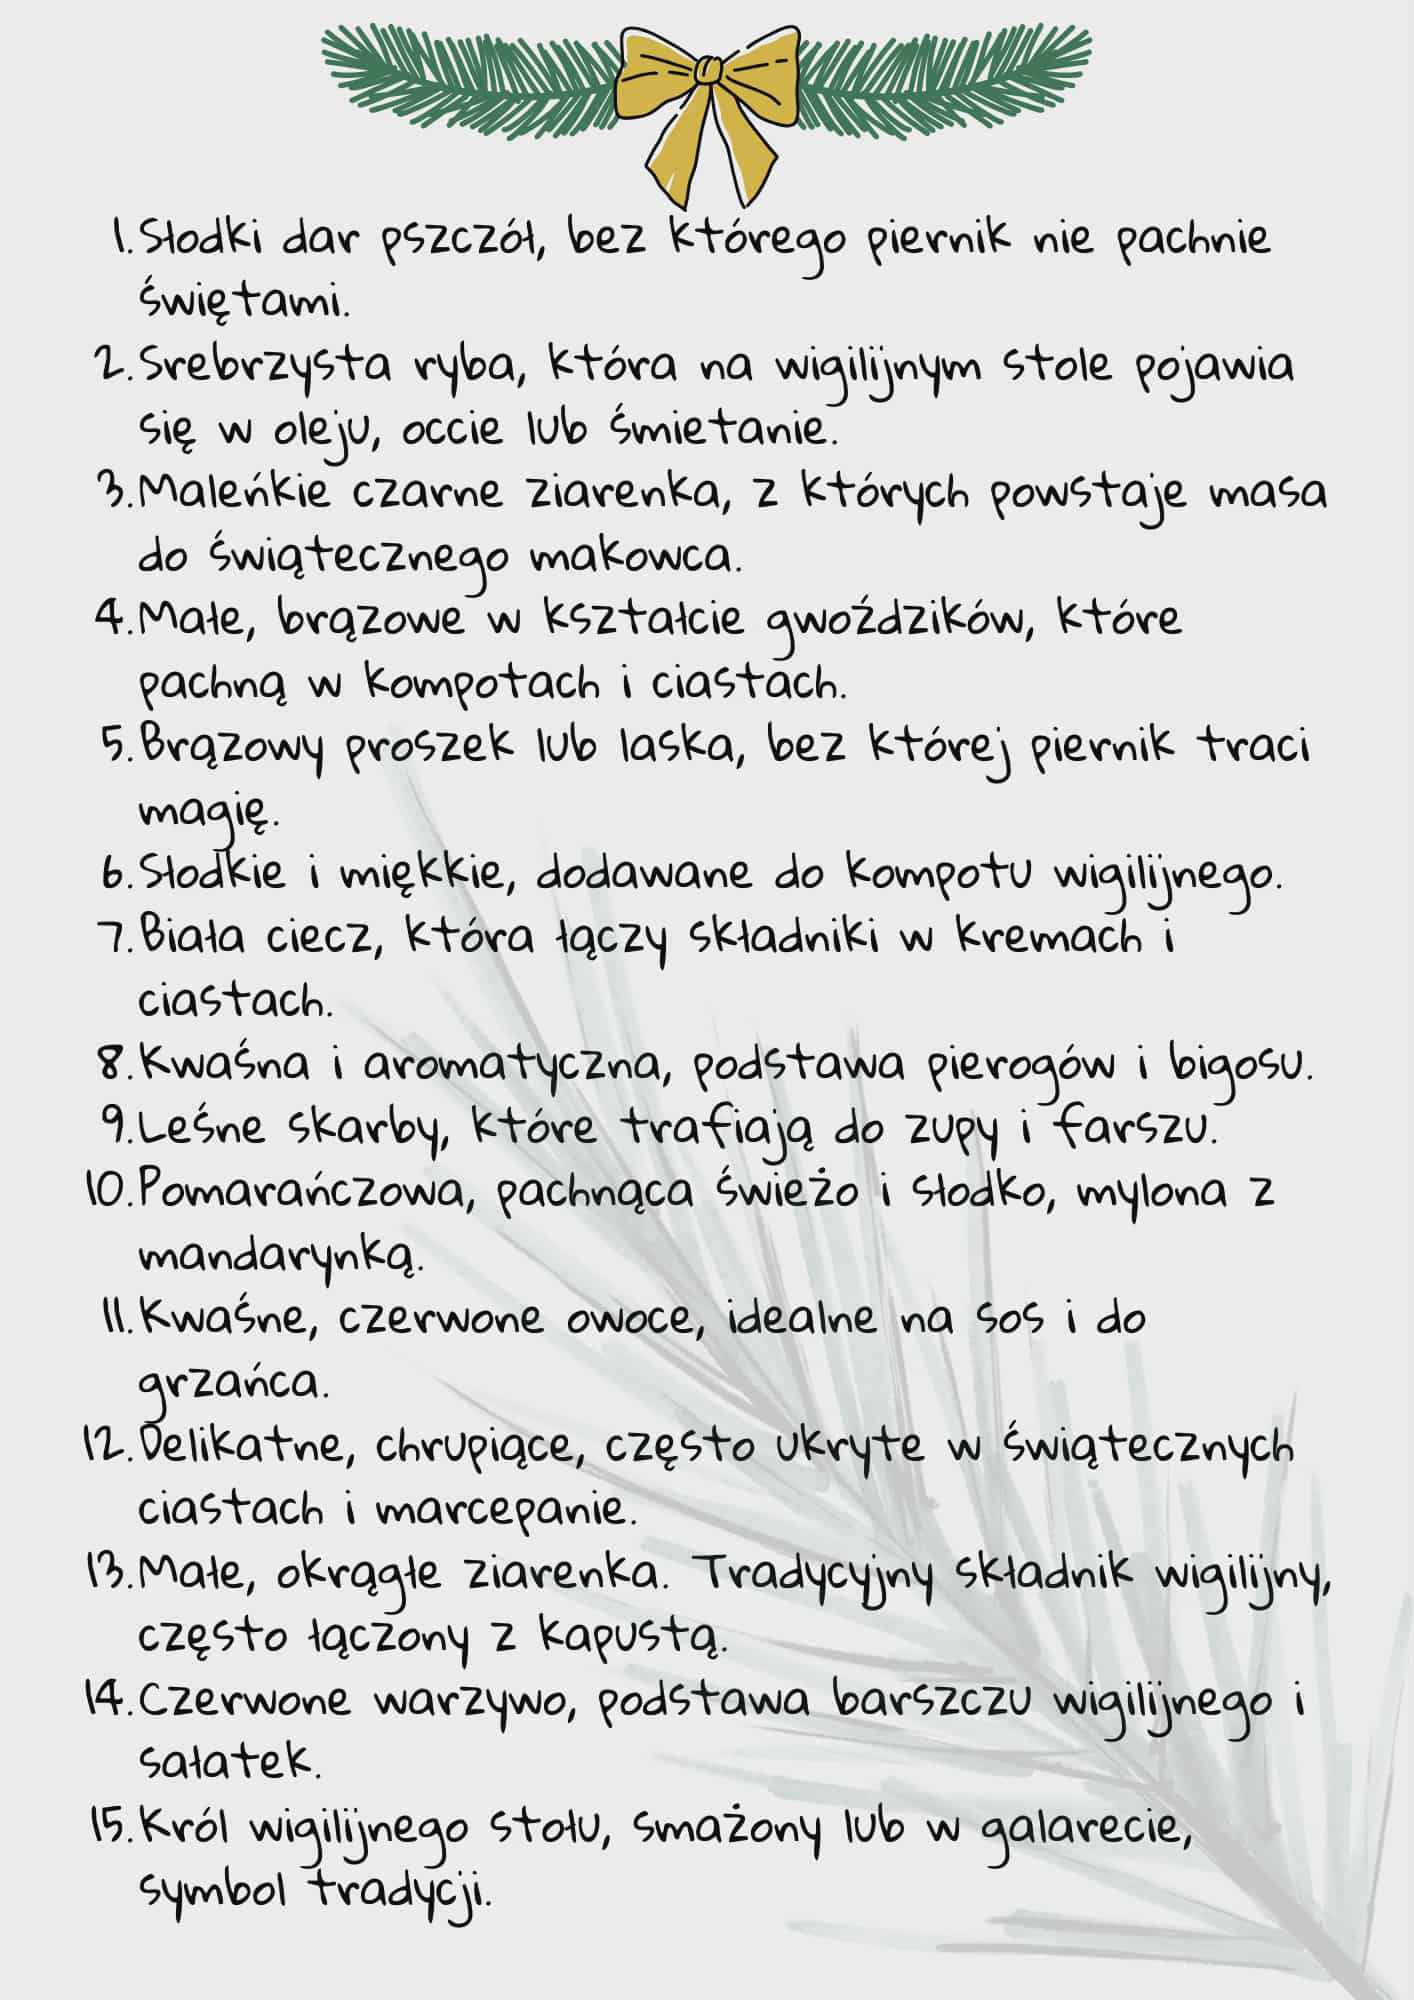 1. Słodki dar pszczół, bez którego piernik nie pachnie
świętami.
2. Srebrzysta ryba, która na wigilijnym stole pojawia
się w oleju, occie lub śmietanie.
3. Maleńkie czarne ziarenka, z których powstaje masa
do świątecznego makowca.
4. Małe, brązowe w kształcie gwoździków, które
pachną w kompotach i ciastach.
5. Brązowy proszek lub laska, bez której piernik traci
magię.
6. Słodkie i miękkie, dodawane do kompotu wigilijnego.
7. Biała ciecz, która łączy składniki w kremach i
ciastach.
8. Kwaśna i aromatyczna, podstawa pierogów i bigosu.
9. Leśne skarby, które trafiają do zupy i farszu.
10. Pomarańczowa, pachnąca świeżo i słodko, mylona z
mandarynką.
11. Kwaśne, czerwone owoce, idealne na sos i do
grzańca.
12. Delikatne, chrupiące, często ukryte w świątecznych
ciastach i marcepanie.
13. Małe, okrągłe ziarenka. Tradycyjny składnik wigilijny,
często łączony z kapustą.
14. Czerwone warzywo, podstawa barszczu wigilijnego i
sałatek.
15. Król wigilijnego stołu, smażony lub w galarecie,
symbol tradycji.